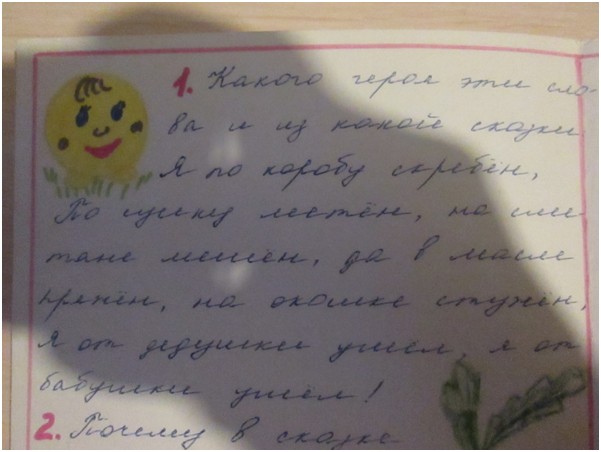 1. Какого героя эти сло-
ва и из какой сказки
Я по коробу скребён,
По сусеку метён, на сме-
тане мешён, да в масле
пряжён, на окошке стужён,
Я от дедушки ушёл, я от
бабушки ушёл!
2. Почему в сказке